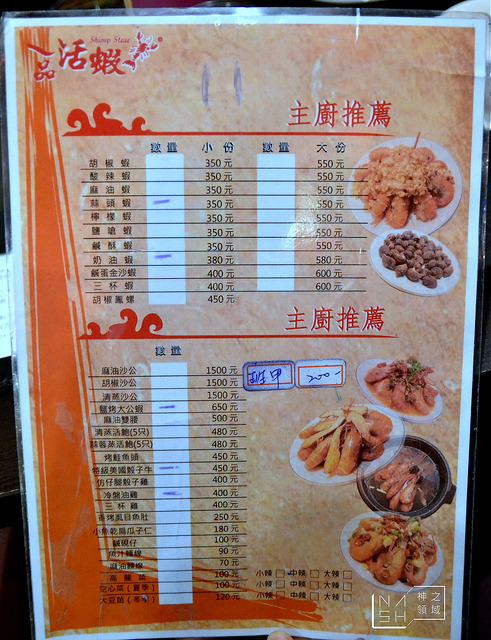 一品活蝦
Shrimp Steac
11
主廚推薦
數量 小份 數量 大份
胡椒蝦 350元 550元
酸辣蝦 350元 550元
麻油蝦 350元 550元
蒜頭蝦 350元 550元
檸檬蝦 350元 550元
鹽嗆蝦 350元 550元
鹹酥蝦 350元 550元
奶油蝦 380元 580元
鹹蛋金沙蝦 400元 600元
三杯蝦 400元 600元
胡椒鳳螺 450元
主廚推薦
數量
麻油沙公 1500元
胡椒沙公 1500元
清蒸沙公 1500元
鹽烤大公蝦 650元
麻油雙腰 500元
清蒸活鮑(5只) 480元
蒜蓉蒸活鮑(5只) 480元
烤鮭魚頭 450元
特級美國骰子牛 450元
仿仔腿骰子雞 400元
冷盤油雞 400元
三杯雞 400元
香烤虱目魚肚 250元
小魚乾扁瓜子仁 180元
鹹蜆仔 100元
魚汁麵線 90元
麻油麵線 70元
高麗菜 100元 小辣 中辣 大辣
空心菜(夏季) 100元 小辣 中辣 大辣
大豆苗(冬季) 120元 小辣 中辣 大辣
200-
NASH 神之領域